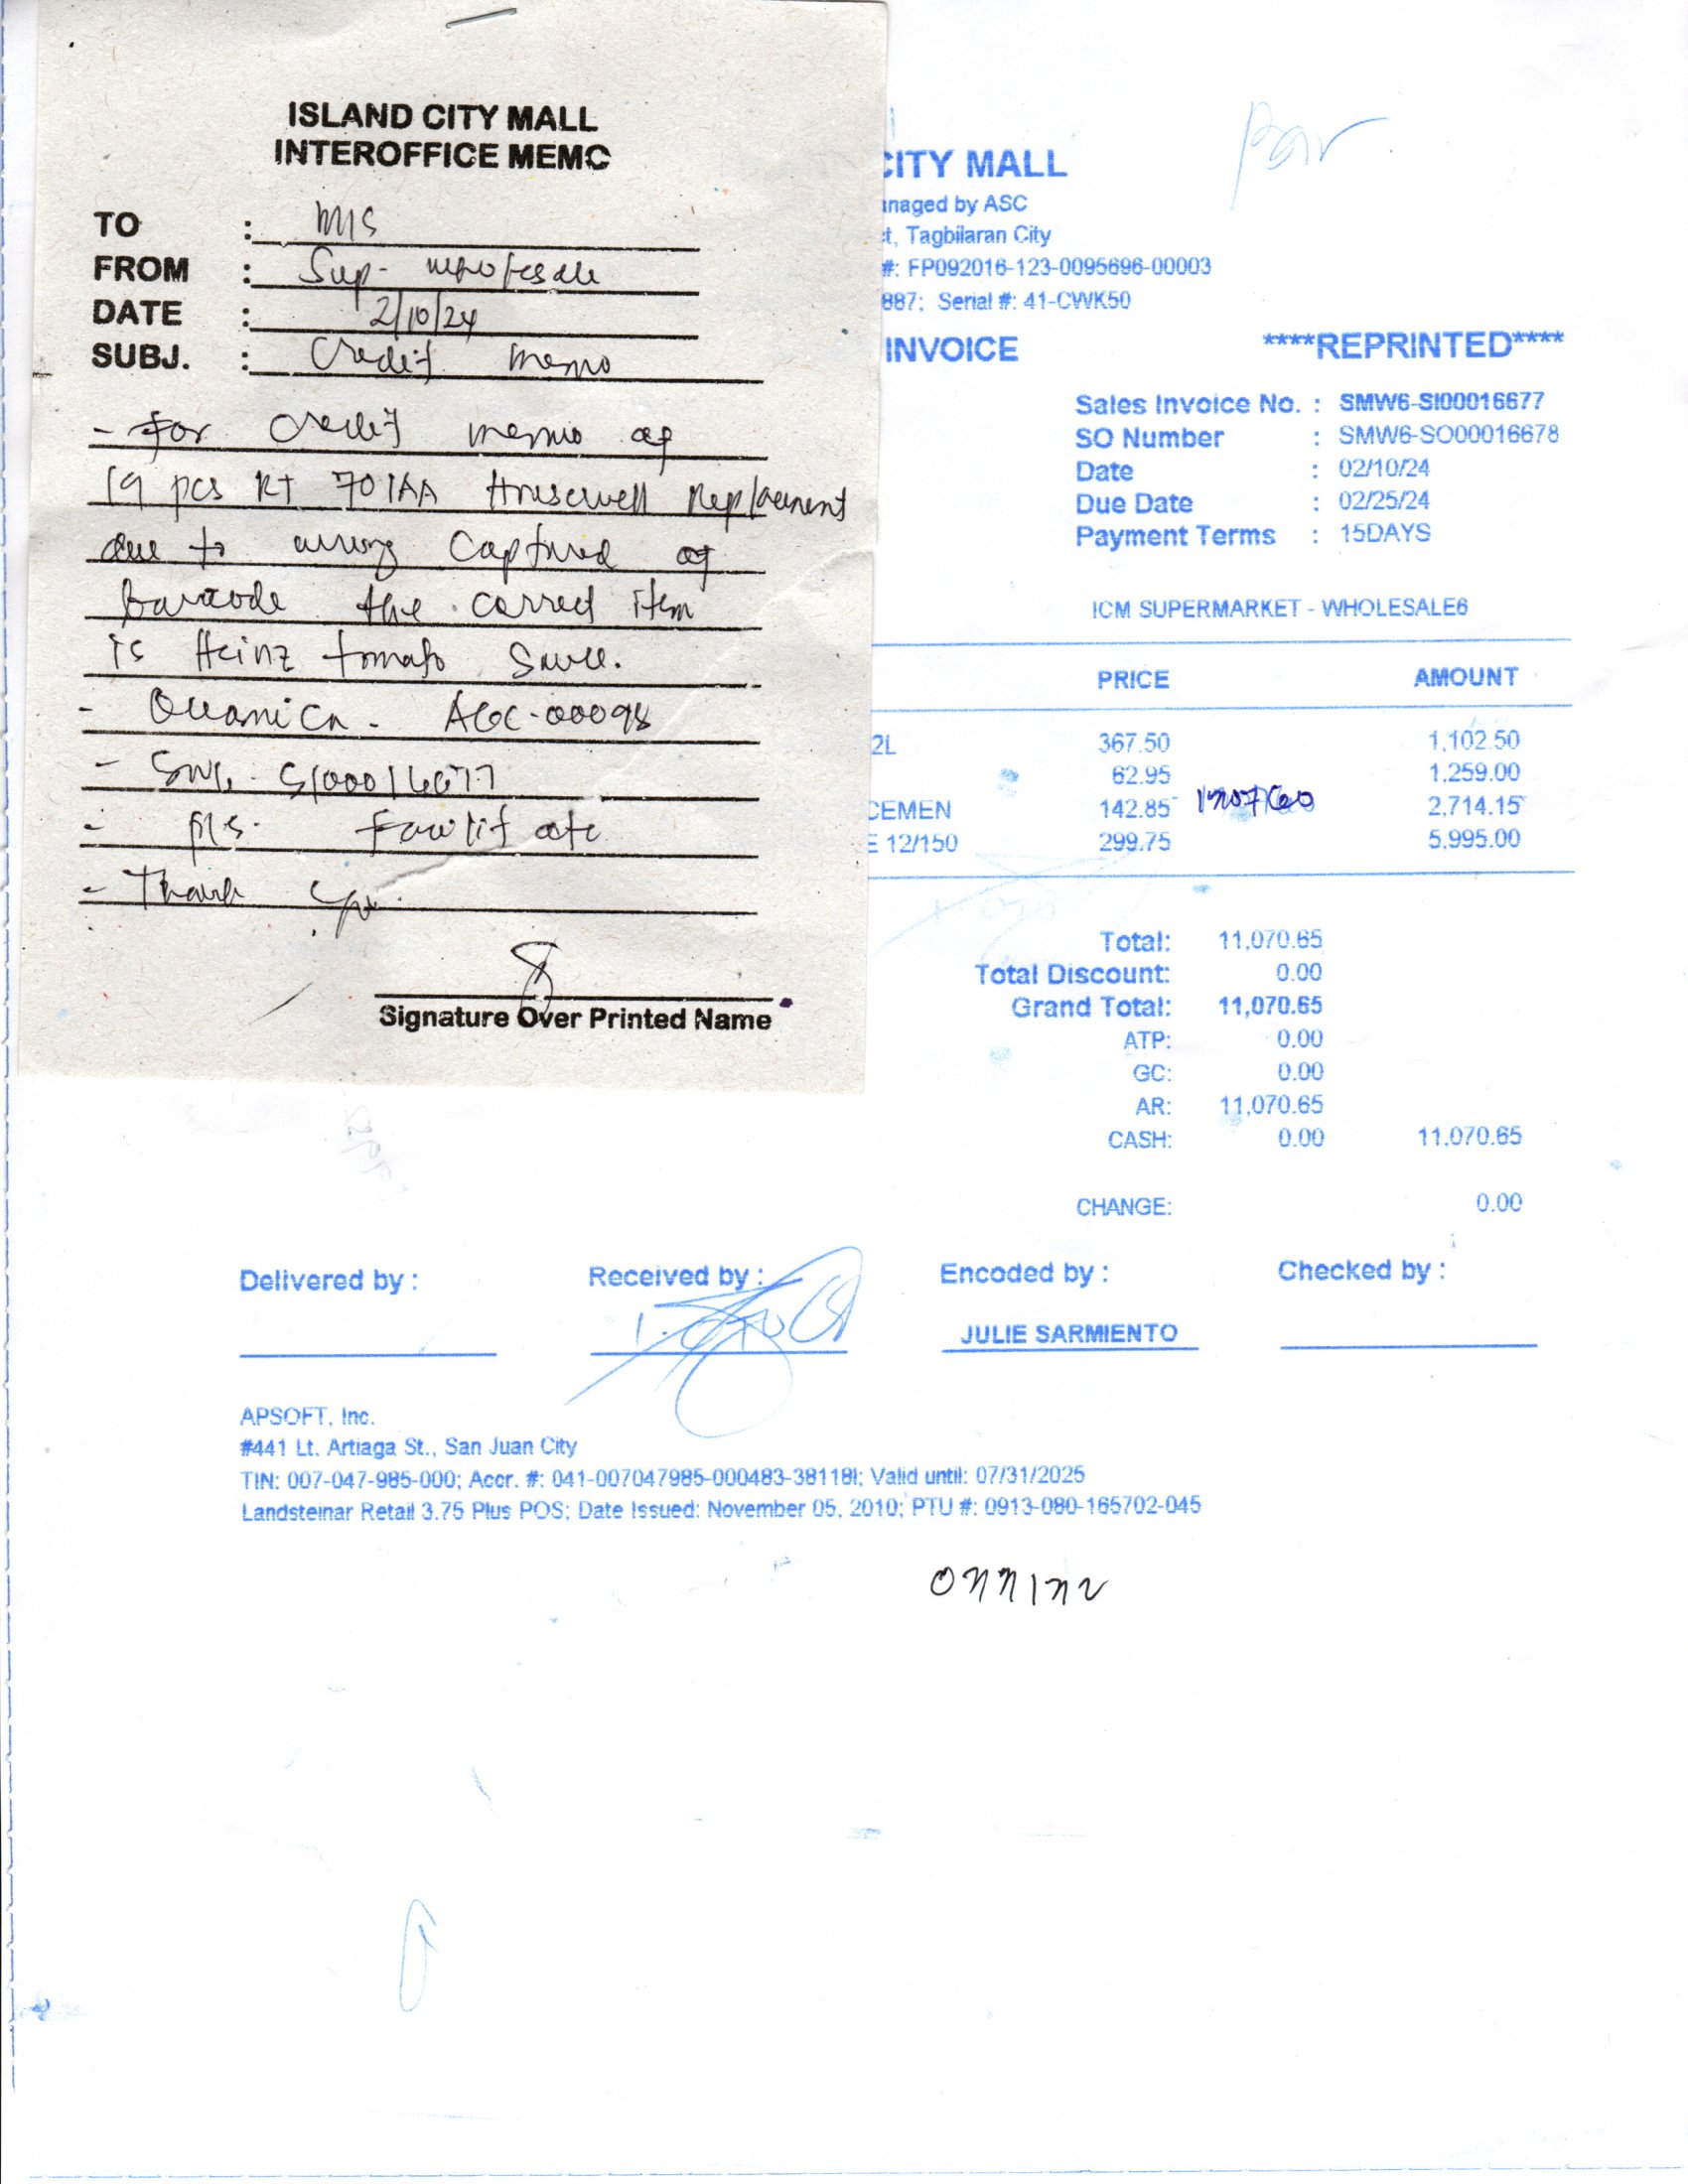 ISLAND CITY MALL
INTEROFFICE MEMO
TO : MIS
FROM : Sup- wholesale
DATE : 2/10/24
SUBJ. : Credit memo
- For Credit memo of
19 pcs RT 701AA Housewell Replacement
due to wrong Captured of
barcode the correct item
is Heinz tomato
- Oceanica - AGC-00098
- SW6- SI00016677
- Pls. Facilitate
- Thank you.
Signature Over Printed Name
CITY MALL
anaged by ASC
t, Tagbilaran City
#: FP092016-123-0095696-00003
887; Serial #: 41-CWK50
INVOICE ****REPRINTED****
Sales Invoice No. : SMW6-SI00016677
SO Number : SMW6-SO00016678
Date : 02/10/24
Due Date : 02/25/24
Payment Terms : 15DAYS
ICM SUPERMARKET - WHOLESALE6
PRICE AMOUNT
2L 367.50 1,102.50
62.95 1,259.00
CEMEN 142.85 2,714.15
E 12/150 299.75 5,995.00
Total: 11,070.65
Total Discount: 0.00
Grand Total: 11,070.65
ATP: 0.00
GC: 0.00
AR: 11,070.65
CASH: 0.00 11,070.65
CHANGE: 0.00
Delivered by : Received by : Encoded by : Checked by :
JULIE SARMIENTO
APSOFT, Inc.
#441 Lt. Artiaga St., San Juan City
TIN: 007-047-985-000; Accr. #: 041-007047985-000483-38118I; Valid until: 07/31/2025
Landsteinar Retail 3.75 Plus POS; Date Issued: November 05, 2010; PTU #: 0913-080-165702-045